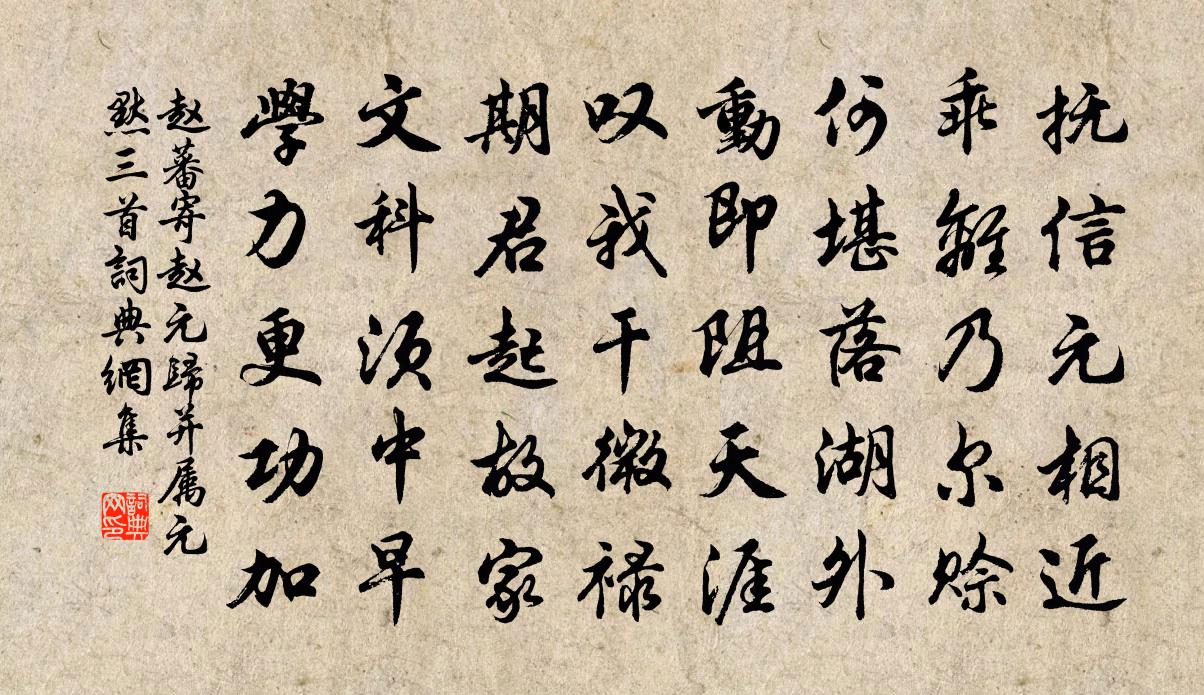 抚信元相近
乖離乃尔赊
何堪落湖外
動即阻天涯
叹我干微禄
期君起故家
文科须中早
學力更功加
赵蕃寄赵元歸并属元
默三首詞典網集
詞典网印